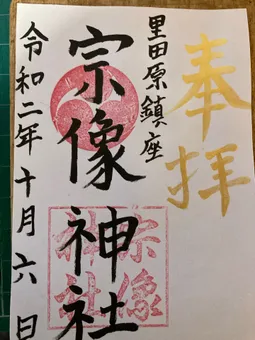 奉拝
里田原鎮座
宗像神社
宗像
神社
令和二年十月六日